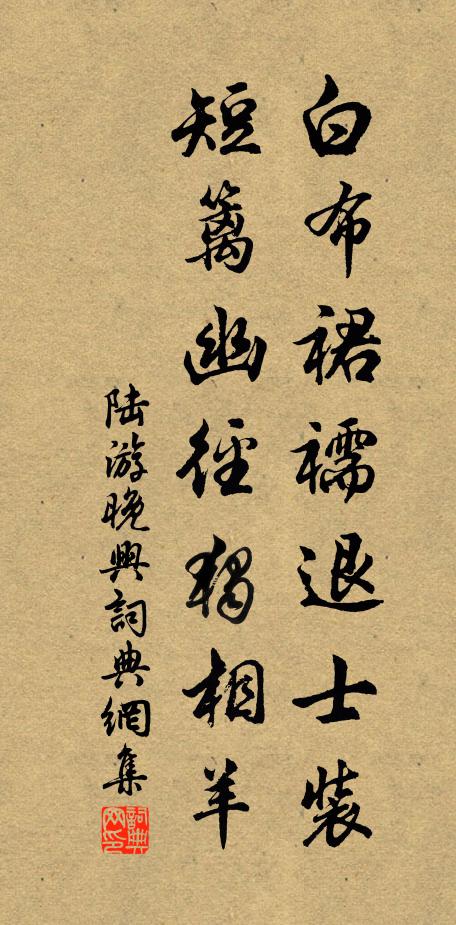 白布裙襦退士裝
短篱幽徑獨相羊
陆游晚興詞典網集
詞典网印